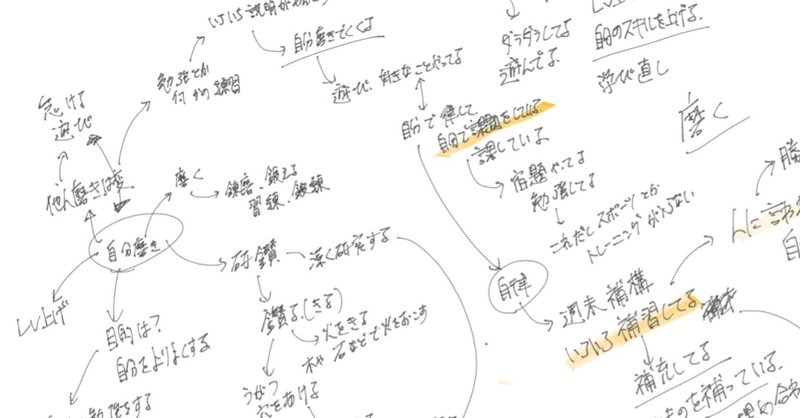 いろいろ説明が
自分磨きでくくる
勉強とか
何かの練習
遊び、好きなことやってる
怠ける
遊び
他人磨きは変
磨く
錬磨、鍛える
習練、鍛練
自分磨き
研鑽
深く研究する
LV上げ
目的は?
自分をよりよくする
鑽る(きる)
火をきる
木や石などで火をおこす
うがつ
穴をあける
ダラダラしてる
遊んでる
自分のスキルを上げる
学び直し
自分で律して
自分で課題をしている
課している
宿題やってる
勉強してる
これだとスポーツとか
トレーニングが入らない
磨く
自律
週末補講
いろいろ補習してる
補充してる
を補っている